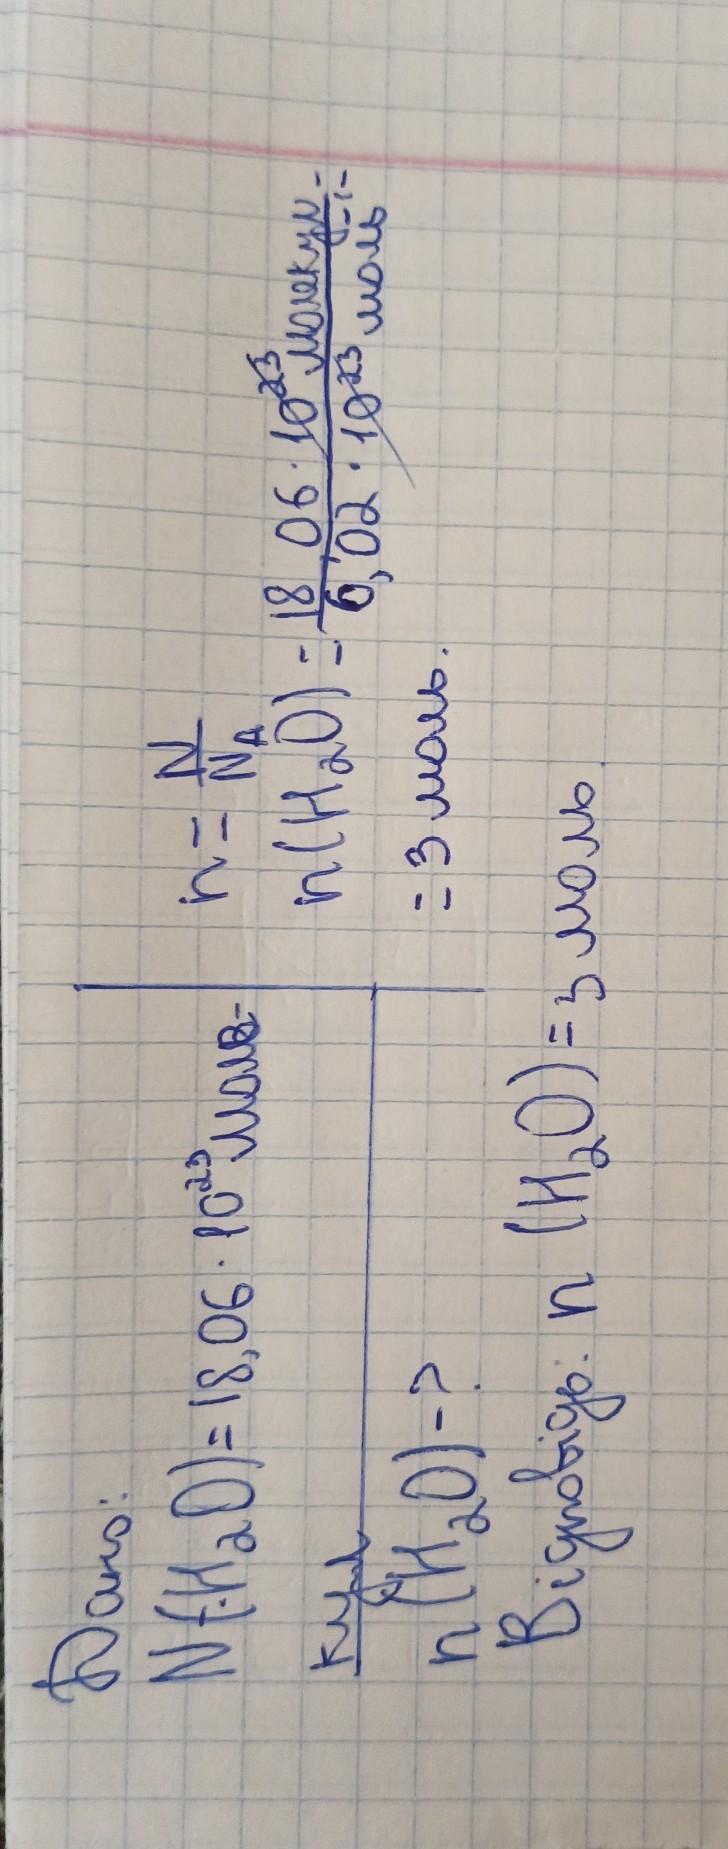 Дано:
N(H₂O) = 18,06 · 10²³ моле-
кул
n(H₂O) - ?
n = N/Nₐ
n(H₂O) = 18,06 · 10²³ молекул / 6,02 · 10²³ моль⁻¹ =
= 3 моль.
Відповідь: n (H₂O) = 3 моль.